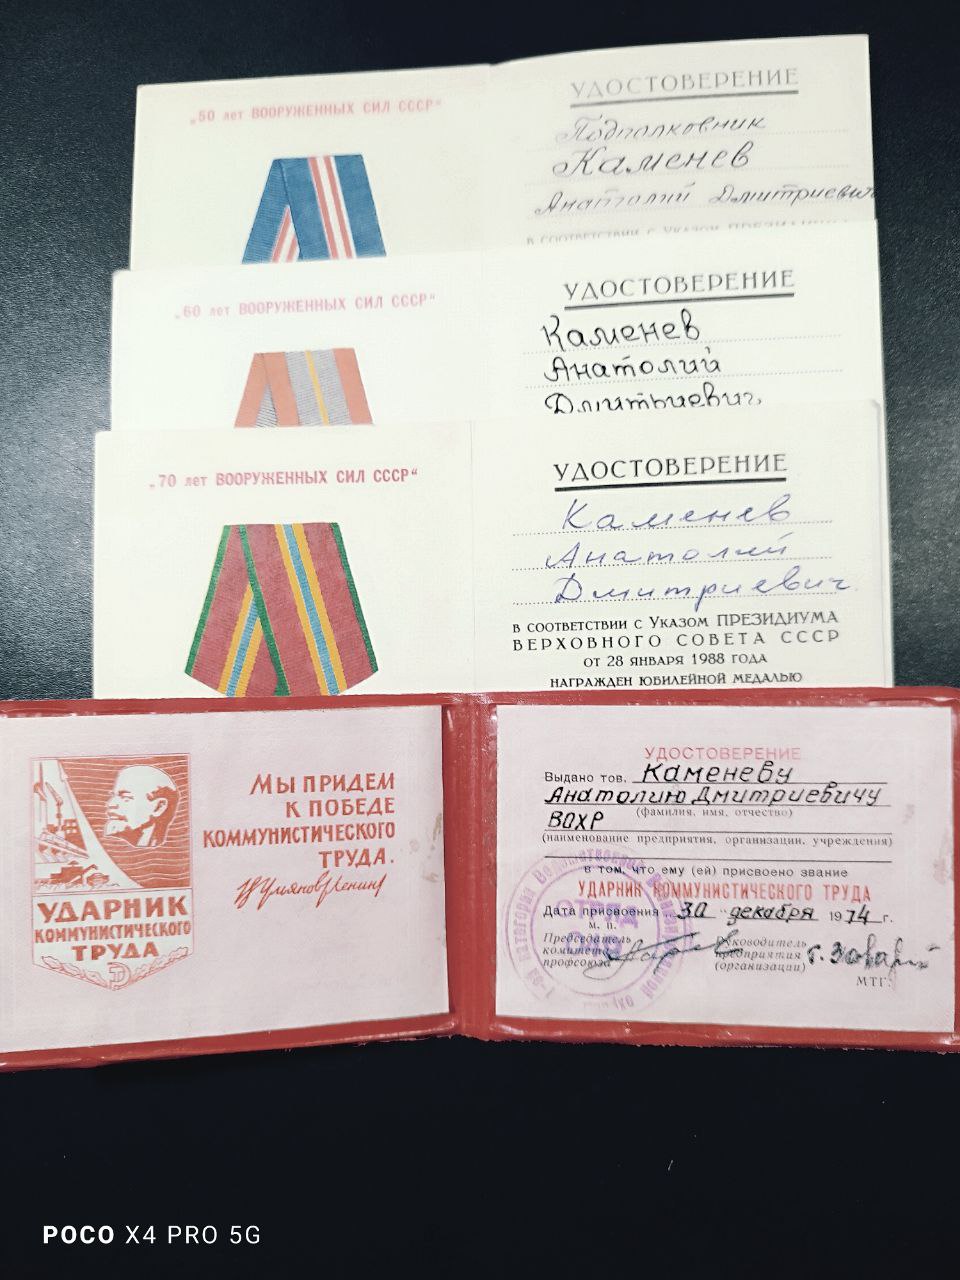 „50 лет ВООРУЖЕННЫХ СИЛ СССР“
УДОСТОВЕРЕНИЕ
Подполковник
Каменев
Анатолий Дмитриевич
в соответствии с Указом Президиума
„60 лет ВООРУЖЕННЫХ СИЛ СССР“
УДОСТОВЕРЕНИЕ
Каменев
Анатолий
Дмитриевич
„70 лет ВООРУЖЕННЫХ СИЛ СССР“
УДОСТОВЕРЕНИЕ
Каменев
Анатолий
Дмитриевич
в соответствии с Указом ПРЕЗИДИУМА
ВЕРХОВНОГО СОВЕТА СССР
от 28 января 1988 года
награжден юбилейной медалью
УДАРНИК
КОММУНИСТИЧЕСКОГО
ТРУДА
МЫ ПРИДЕМ
К ПОБЕДЕ
КОММУНИСТИЧЕСКОГО
ТРУДА.
В Ульянов (Ленин)
УДОСТОВЕРЕНИЕ
Выдано тов. Каменеву
Анатолию Дмитриевичу
(фамилия, имя, отчество)
ВОХР
(наименование предприятия, организации, учреждения)
в том, что ему (ей) присвоено звание
УДАРНИК КОММУНИСТИЧЕСКОГО ТРУДА
Дата присвоения „30“ декабря 1974 г.
М. П.
Председатель
комитета
профсоюза
Руководитель
предприятия
(организации)
МТГ.
POCO X4 PRO 5G